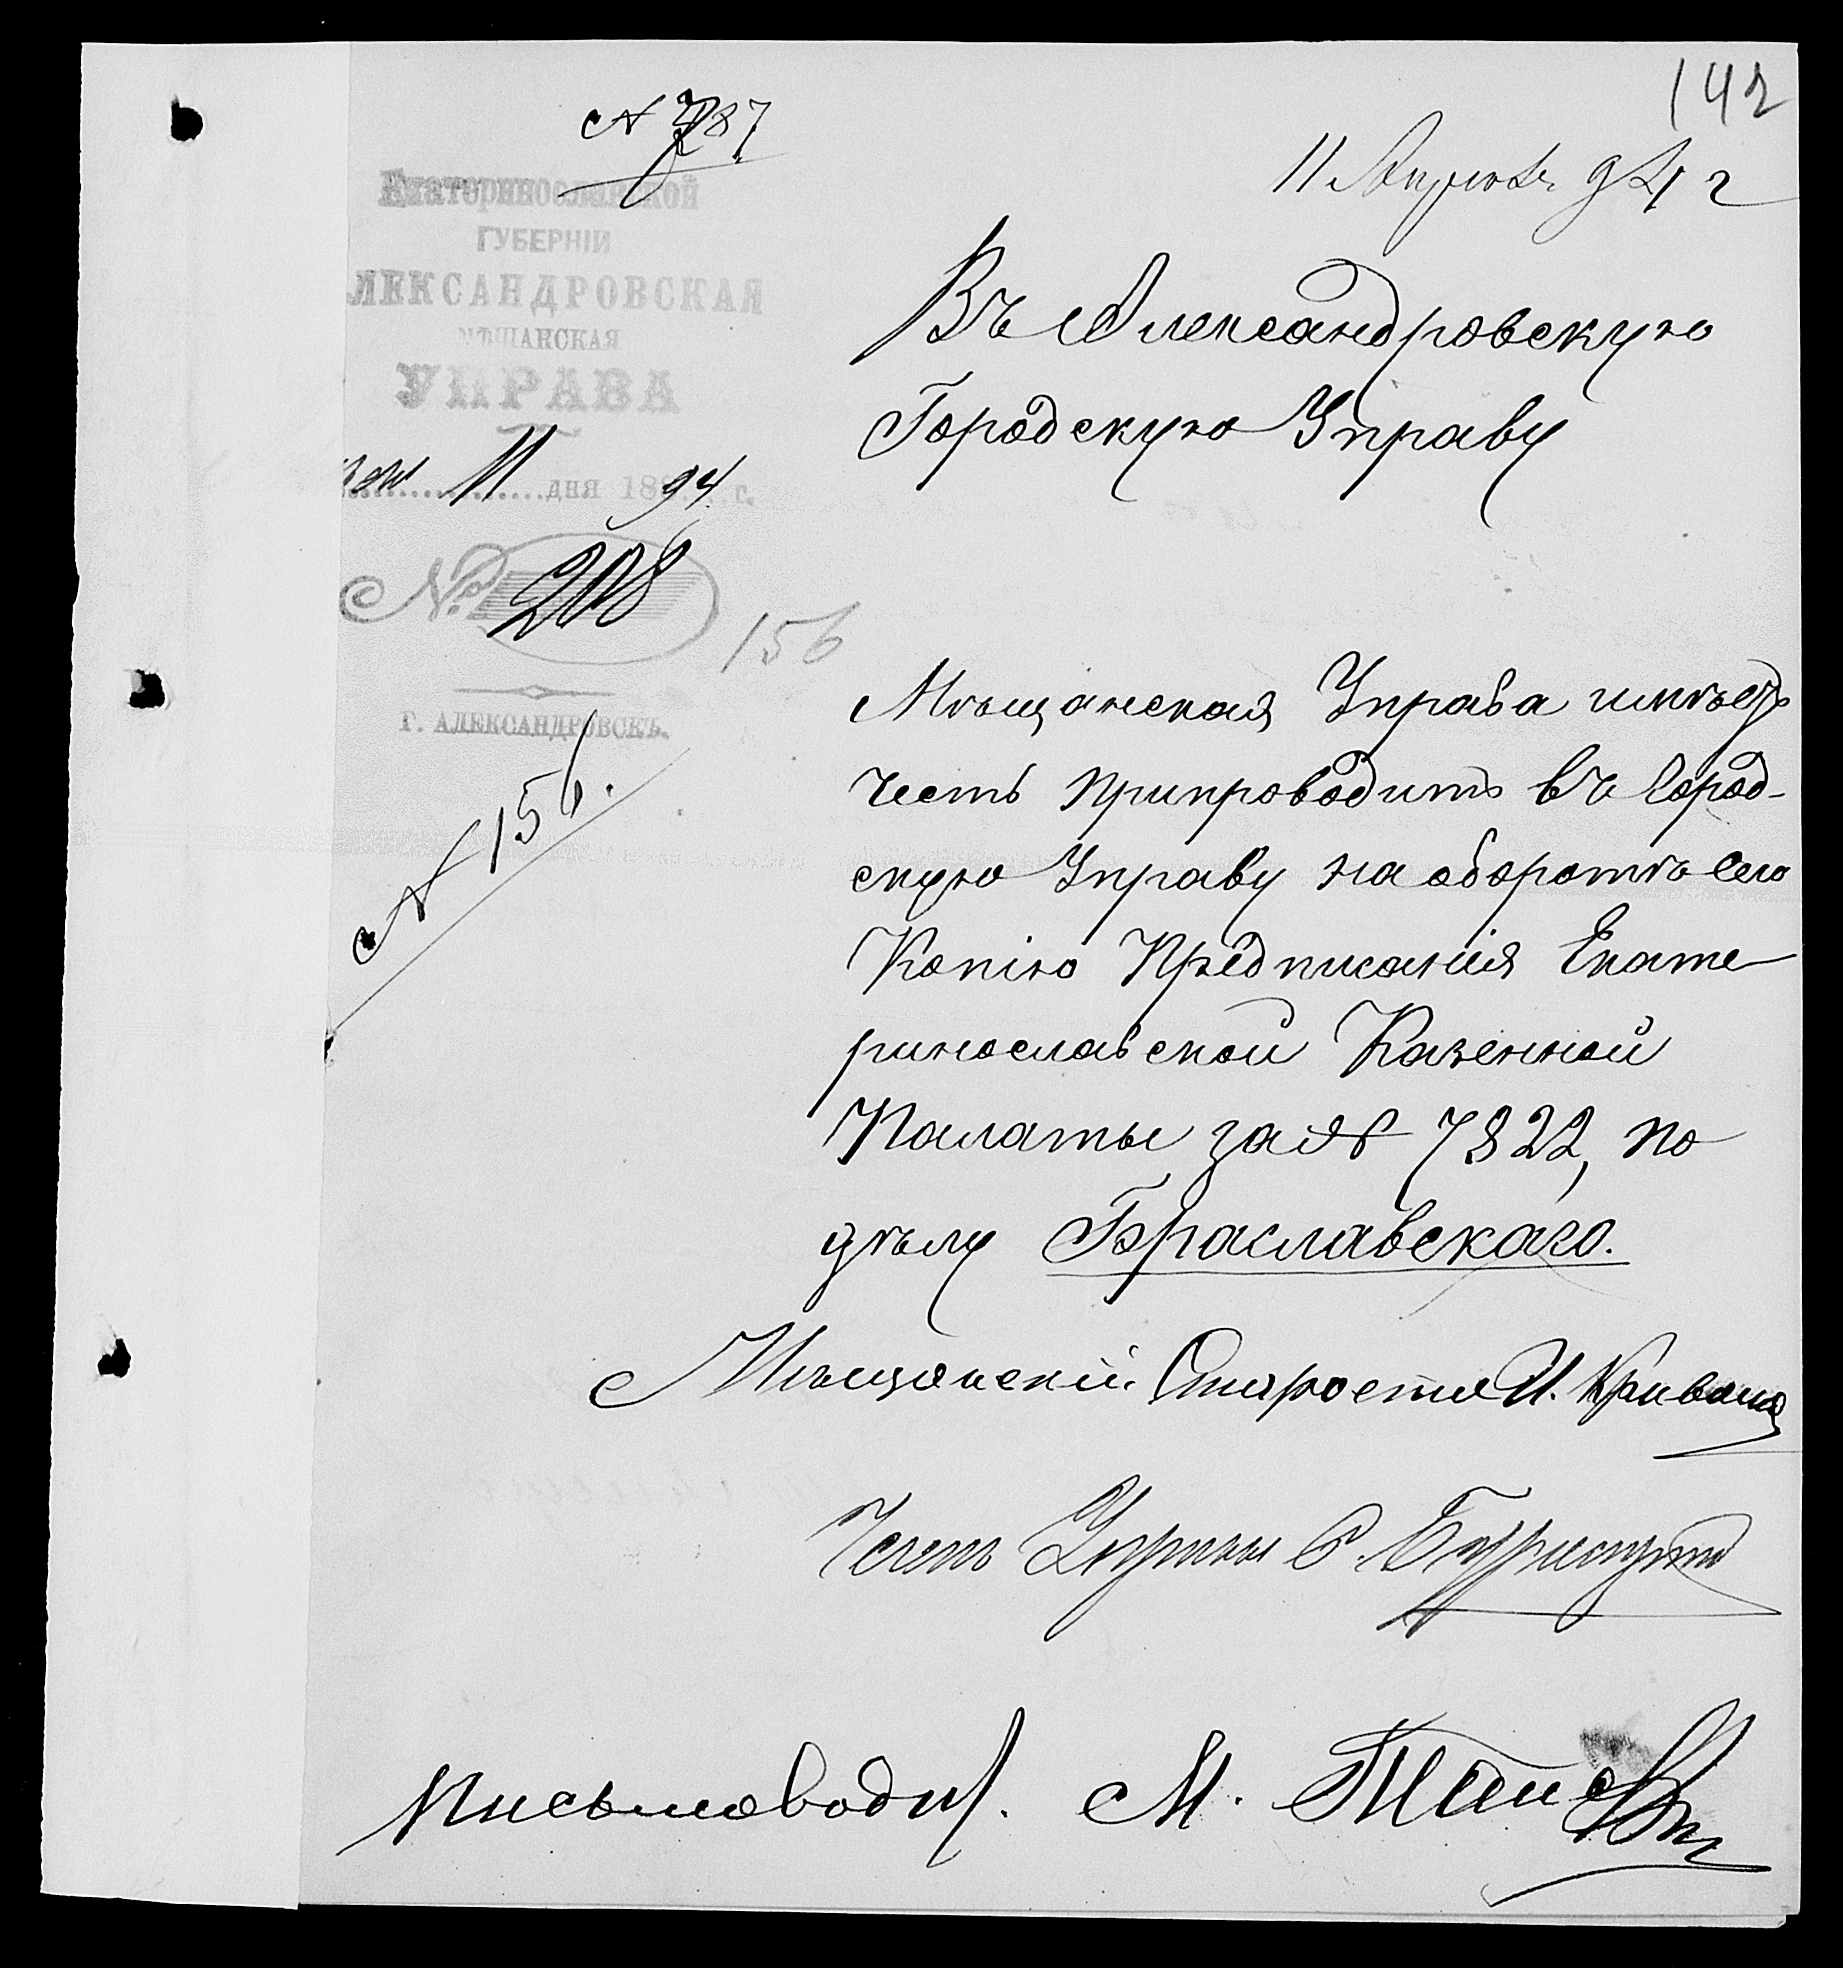 142
№ 787
11 Апрѣля 94 г
Екатеринославской
ГУБЕРНІИ
ЛЕКСАНДРОВСКАЯ
МѢЩАНСКАЯ
УПРАВА
11 дня 1894 г.
№ 208
156
Г. АЛЕКСАНДРОВСКЪ.
№ 156.
Въ Александровскую
Городскую Управу
Мѣщанская Управа имѣетъ
честь припроводить въ Город-
скую Управу на оборотѣ сего
Копію Предписанія Екате
ринославской Казенной
Палаты за № 7822, по
дѣлу Браславскаго.
Мѣщанскій Староста И.
Членъ Управы
Письмовод М.